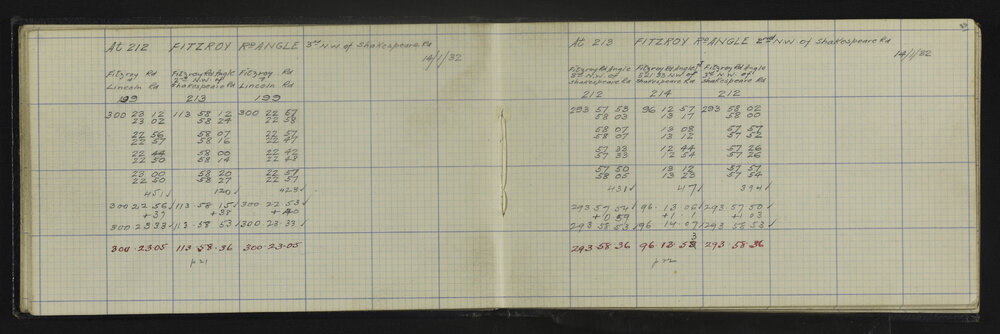 At 212 FITZROY RD ANGLE 3rd N.W. of Shakespeare Rd
14/1/32
Fitzroy Rd Fitzroy Rd Angle Fitzroy Rd
+ 2nd N.W. of +
Lincoln Rd Shakespeare Rd Lincoln Rd
199 213 199
300 23 12 113 58 12 300 22 57
23 02 58 24 22 58
22 56 58 07 22 57
22 57 58 16 22 47
22 44 58 00 22 42
22 50 58 14 22 48
23 00 58 20 22 57
22 50 58 27 22 57
451 √ 120 √ 423 √
300 22 56 √ 113 · 58 15 √ 300 · 22 53 √
+37 +38 +40
300 23 33 √ 113 · 58 53 √ 300 · 23 · 33 √
300 · 23 · 05 113 · 58 · 36 300 · 23 · 05
p 21
At 213 FITZROY RD ANGLE 2nd N.W. of Shakespeare Rd
14/1/32
Fitzroy Rd Angle Fitzroy Rd Angle Fitzroy Rd Angle
3rd N.W. of N.W. of 3rd N.W. of
Shakespeare Rd Shakespeare Rd Shakespeare Rd
212 214 212
293 57 53 96 12 57 293 58 02
58 03 13 17 58 00
58 07 13 08 57 57
58 07 13 12 57 52
57 33 12 44 57 26
57 33 12 54 57 26
57 50 13 12 57 57
58 05 13 23 57 54
431 √ 47 √ 394 √
293 · 57 · 54 √ 96 · 13 · 06 √ 293 · 57 · 50 √
+0 59 +1 · 1 +1 03
293 58 53 √ 96 14 · 07 √ 293 · 58 · 53 √
293 · 58 · 36 96 13 · 53 293 · 58 · 36
p 22